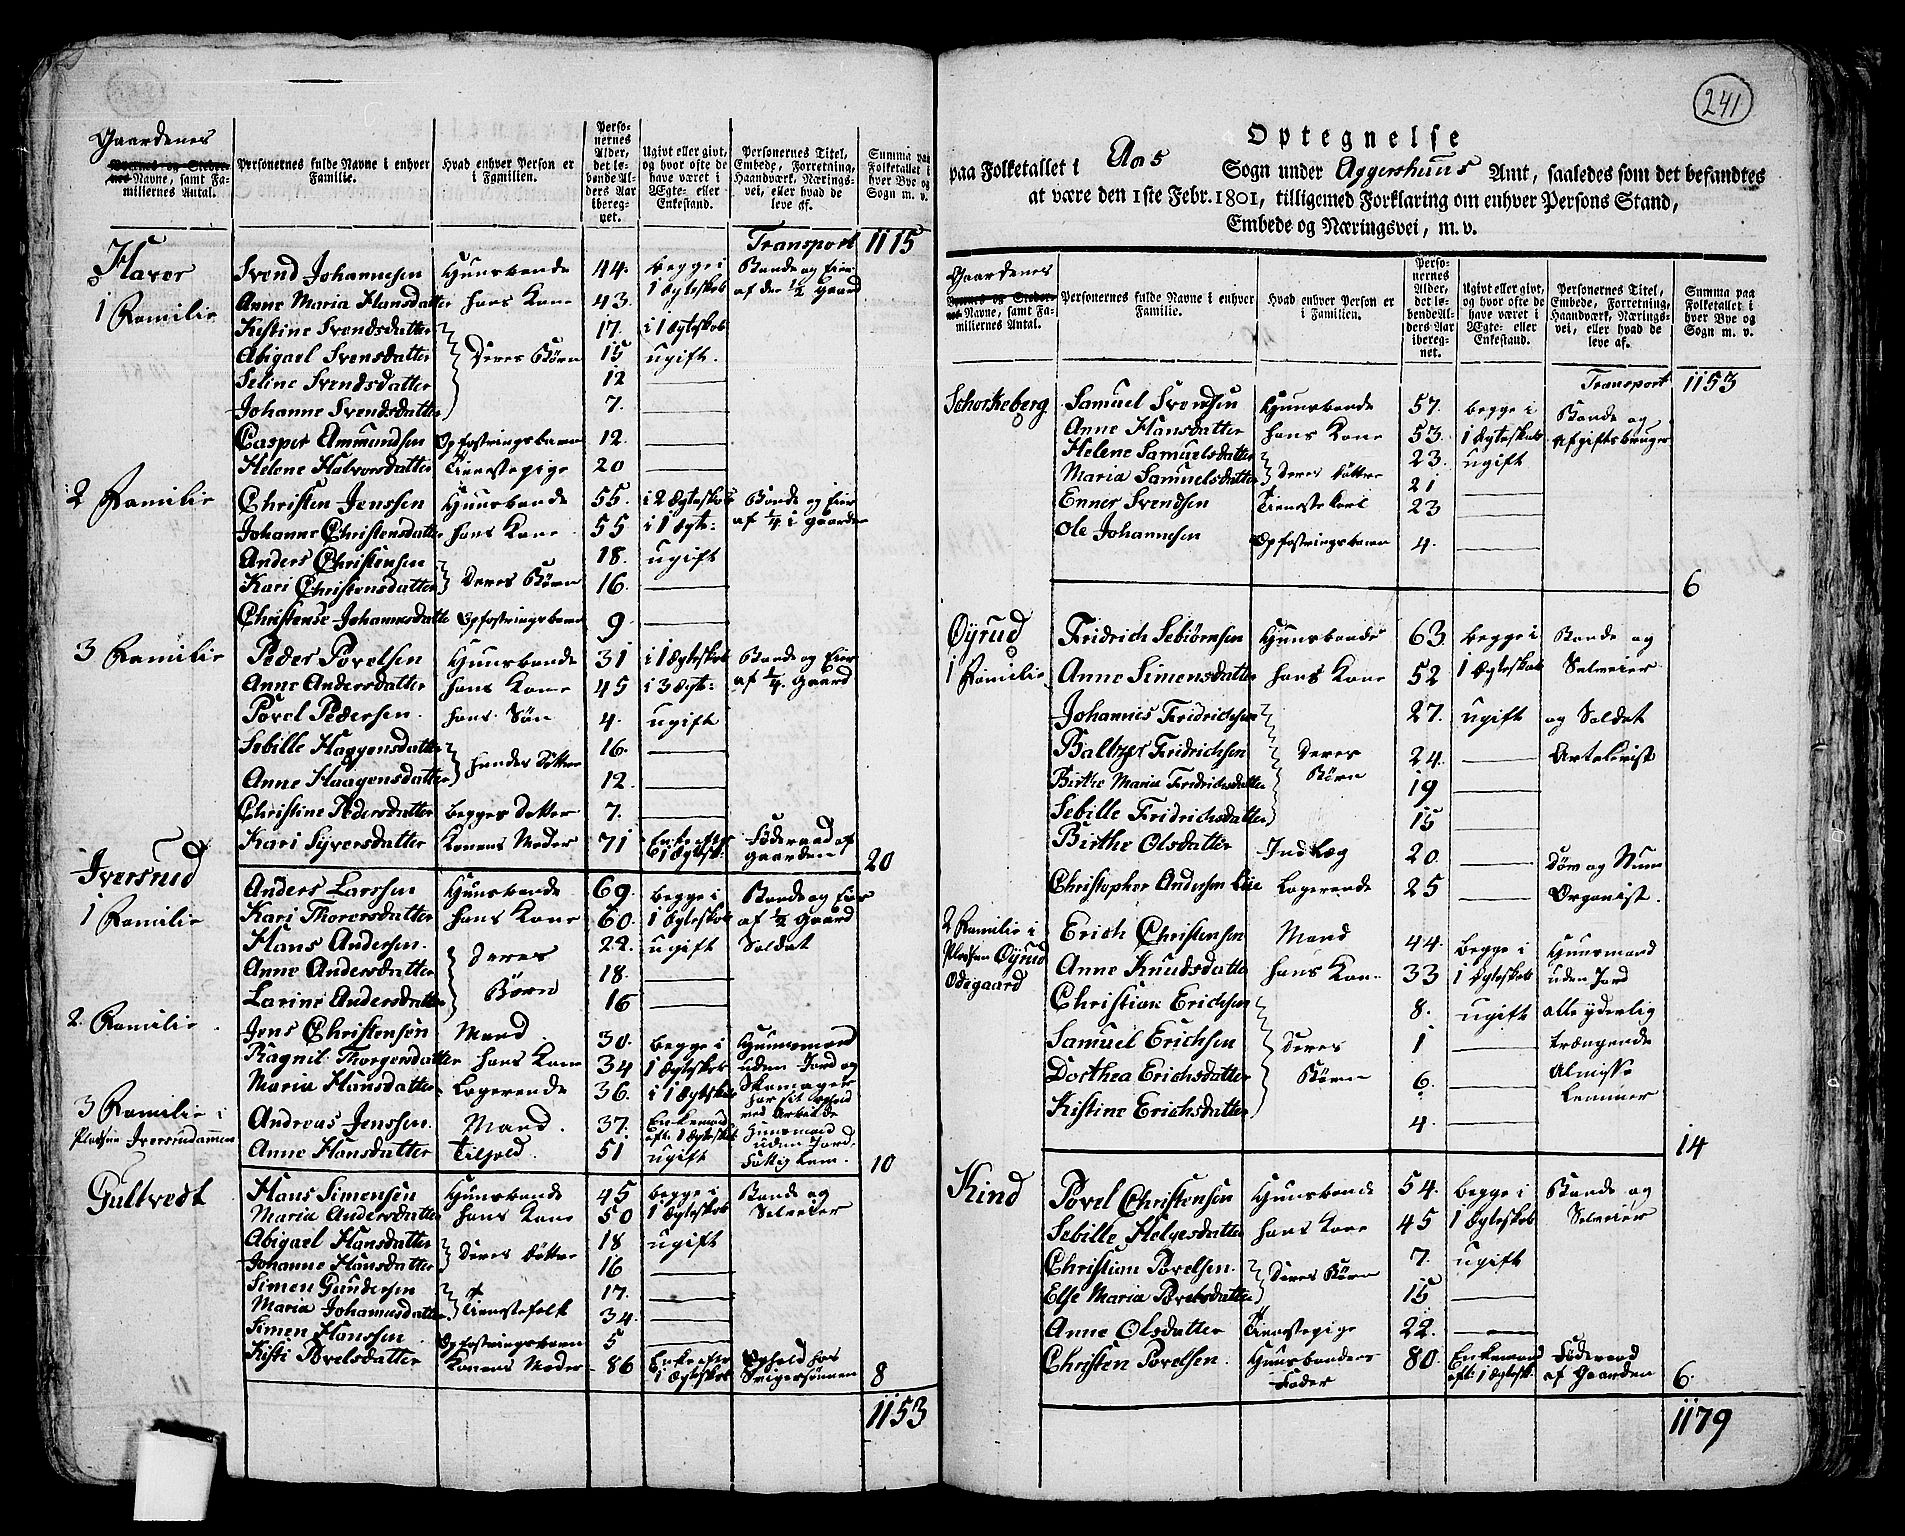 Gaardenes
Navnes og Steder-nes Navne, samt Familiernes Antal. | Personernes fulde Navne i enhver Familie. | Hvad enhver Person er i Familien. | Personernes Alder, det lebende Alders Aar iberegnet. | Ugivt eller givt, og hvor ofte de have været i Ægte- eller Enkestand. | Personernes Titel, Embede, Forretning, Haandværk, Næringsvei, eller hvad de leve af. | Summa paa Folketallet i hver Bye og Sogn m. v.
Transport 1115
Haver Svend Johannesen Huusbonde 44. begge i Bonde og Eier
1 Familie Anne Maria Hansdatter hans Kone 43. 1 Ægteskab af den 1/2 Gaard
Kistine Svendsdatter 17. i 1 Ægteskab
Abigael Svensdatter Deres Børn 15 ugift.
Seline Svendsdatter 12
Johanne Svendsdatter 7.
Casper Ammundsen Opfostringsbarn 12.
Helene Halvorsdatter Tienestepige 20
2 Familie Christen Jenssen Huusbonde 55. i 2 Ægteskab Bonde og Eier
Johanne Christensdatter hans Kone 55 i 1 Ægt: af 1/4 i Gaarden
Anders Christensen 18. ugift
Kari Christensdatter Deres Børn 16.
Christense Johannesdatte Opfostringsbarn 9
3 Familie Peder Povelsen Huusbonde 31 i 1 Ægteskab Bonde og Eier
Anne Andersdatter hans Kone 45 i 3 Ægt: af 1/4 Gaard
Povel Pedersen hans Søn 4. ugift
Sebille Haagensdatter 16. hendes Døttre
Anne Haagensdatter 12.
Christine Pedersdatter begges Datter 7.
Kari Syversdatter Konens Moder 71 Enke efter 1 Ægtesk: Føderaad af Gaarden 20
Iversrud Anders Larssen Huusbonde 69. begge i Bonde og Eier
1 Familie Kari Thoresdatter hans Kone 60. 1 Ægteskab af 1/2 Gaard
Hans Andersen. Deres 22. ugift Soldat
Anne Andersdatter Børn 18.
Larine Andersdatter 16
2. Familie Jens Christensen Mand 30. begge i Huusmand
Ragnil Thorgersdatter hans Kone 34 1 Ægteskab uden Jord og Skomager
Maria Hansdatter Logerende 36. i 1 Ægteskab har sit Ophold ved Arbeide
3 Familie i Andreas Jenssen Mand. 37. Enkemand eft. 1 Ægteskab Huusmand uden Jord
Pladsen Iversrudammen Anne Hansdatter Tilhold. 51. ugift Fattig Lem. 10
Gultvedt Hans Simensen Huusbonde 45 begge i Bonde og
Maria Andersdatter hans Kone 50 1 Ægteskab Selveier
Abigael Hansdatter 18 ugift
Johanne Hansdatter Deres Døttre 16
Simen Gundersen 17.
Maria Johannesdatter Tienestefolk 34.
Simen Hanssen Opfostringsbarn 5
Kisti Povelsdatter Konens Moder 86 Enke efter 1 Ægteskab Ophold hos Svigersønnen 8
1153
241
Optegnelse
paa Folketallet i Aas Sogn under Aggershuus Amt, saaledes som det befandtes
at være den 1ste Febr. 1801, tilligemed Forklaring om enhver Persons Stand,
Embede og Næringsvei, m. v.
Gaardenes
Navnes og Steder-nes Navne, samt Familiernes Antal. | Personernes fulde Navne i enhver Familie. | Hvad enhver Person er i Familien. | Personernes Alder, det lebende Alders Aar iberegnet. | Ugivt eller givt, og hvor ofte de have været i Ægte- eller Enkestand. | Personernes Titel, Embede, Forretning, Haandværk, Næringsvei, eller hvad de leve af. | Summa paa Folketallet i hver Bye og Sogn m. v.
Transport 1153
Schorkeberg Samuel Svendsen Huusbonde 57. begge i Bonde og
Anne Hansdatter hans Kone 53. 1 Ægteskab Afgiftsbruger
Helene Samuelsdatter 23. ugift
Maria Samuelsdatter Deres Døttre 21
Enner Svendsen Tienestekarl 23
Ole Johannesen Opfostringsbarn 4.
6
Øyrud Fridrich Sebiørnsen Huusbonde 63. begge i Bonde og
1 Familie Anne Simensdatter hans Kone 52 1 Ægteskab Selveier
Johannes Fridrichsen 27. ugift og Soldat
Baltzer Fridrichsen Deres 24. Artelerist
Birthe Maria Fridrichsdatter Børn 19
Sebille Fridrichsdatter 15
Birthe Olsdatter Indlæg 20. Døv og Stum
Christopher Andersen Liie Logerende 25 Organist.
2 Familie i Erich Christensen Mand 44. begge i Huusmand
Pladsen Øyrud Anne Knudsdatte hans Kone 33 1 Ægteskab uden Jord
Ødegaard Christian Erichsen 8. ugift alle yderlig
Samuel Erichsen Deres 1 trængende
Dorthea Erichsdatter Børn 6. Almisse
Kistine Erichsdatter 4. Lemmer
14
Kind Povel Christensen Huusbonde 54. begge i Bonde og
Sebille Helgesdatter hans Kone 45 1 Ægteskab Selveier
Christian Povelsen. 7. ugift
Else Maria Povelsdatter Deres Børn 15
Anne Olsdatter Tienestepige 22.
Christen Povelsen. Huusbondens Fader 80. Enkemand eft: 1 Ægtesk: Føderaad af Gaarden 6.
1179